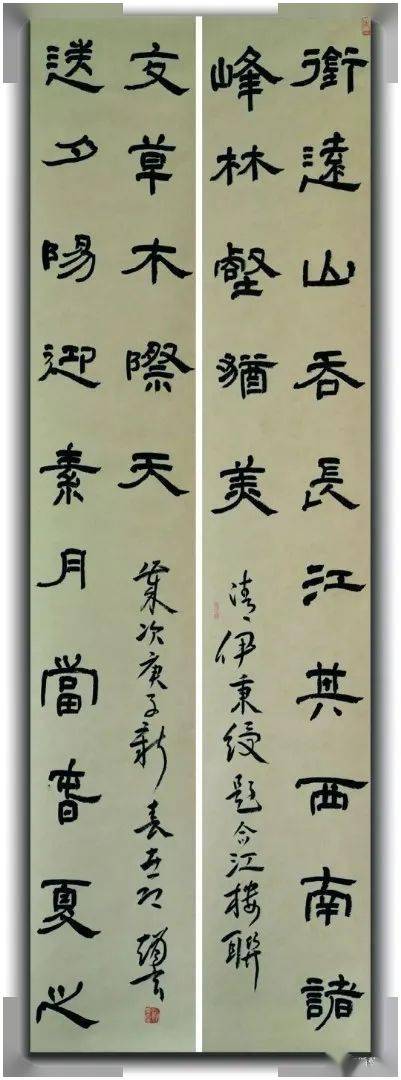 銜遠山吞長江其西南諸
峰林壑猶美
清、伊秉綬題合江楼聯
送夕陽迎素月當春夏之
交草木際天
歲次庚子新春